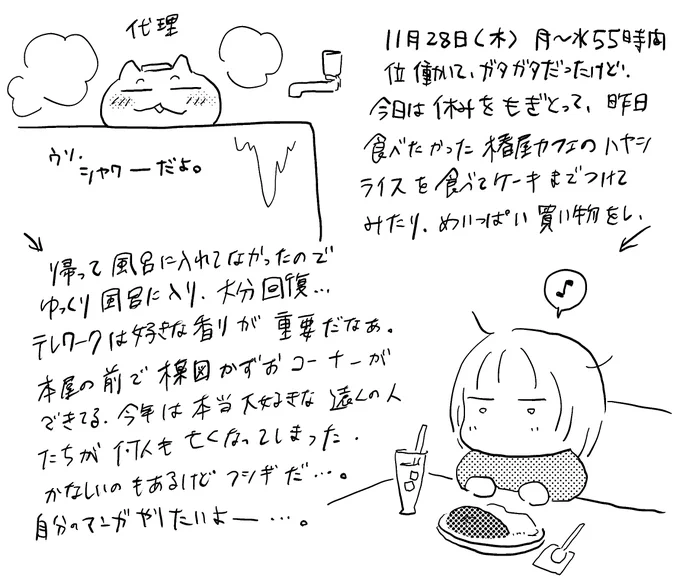 11月28日(木) 月〜水55時間
位働いて、ガタガタだったけど、
今日は休みをもぎとって、昨日
食べたかった橘屋カフェのハヤシ
ライスを食べてケーキまでつけて
みたり、めいっぱい買い物をし、
代理
ウソ、
シャワーだよ。
帰って風呂に入れてなかったので
ゆっくり風呂に入り、大分回復…
テレワークは好きな香りが重要だなぁ。
本屋の前で楳図かずおコーナーが
できてる、今年は本当大好きな遠くの人
たちが何人も亡くなってしまった、
かなしいのもあるけどフシギだ…。
自分のマンガやりたいよー…。
♪